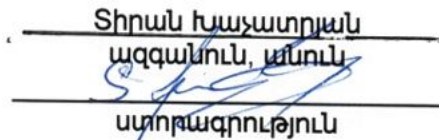 Տիրան Խաչատրյան
ազգանուն, անուն
ստորագրություն